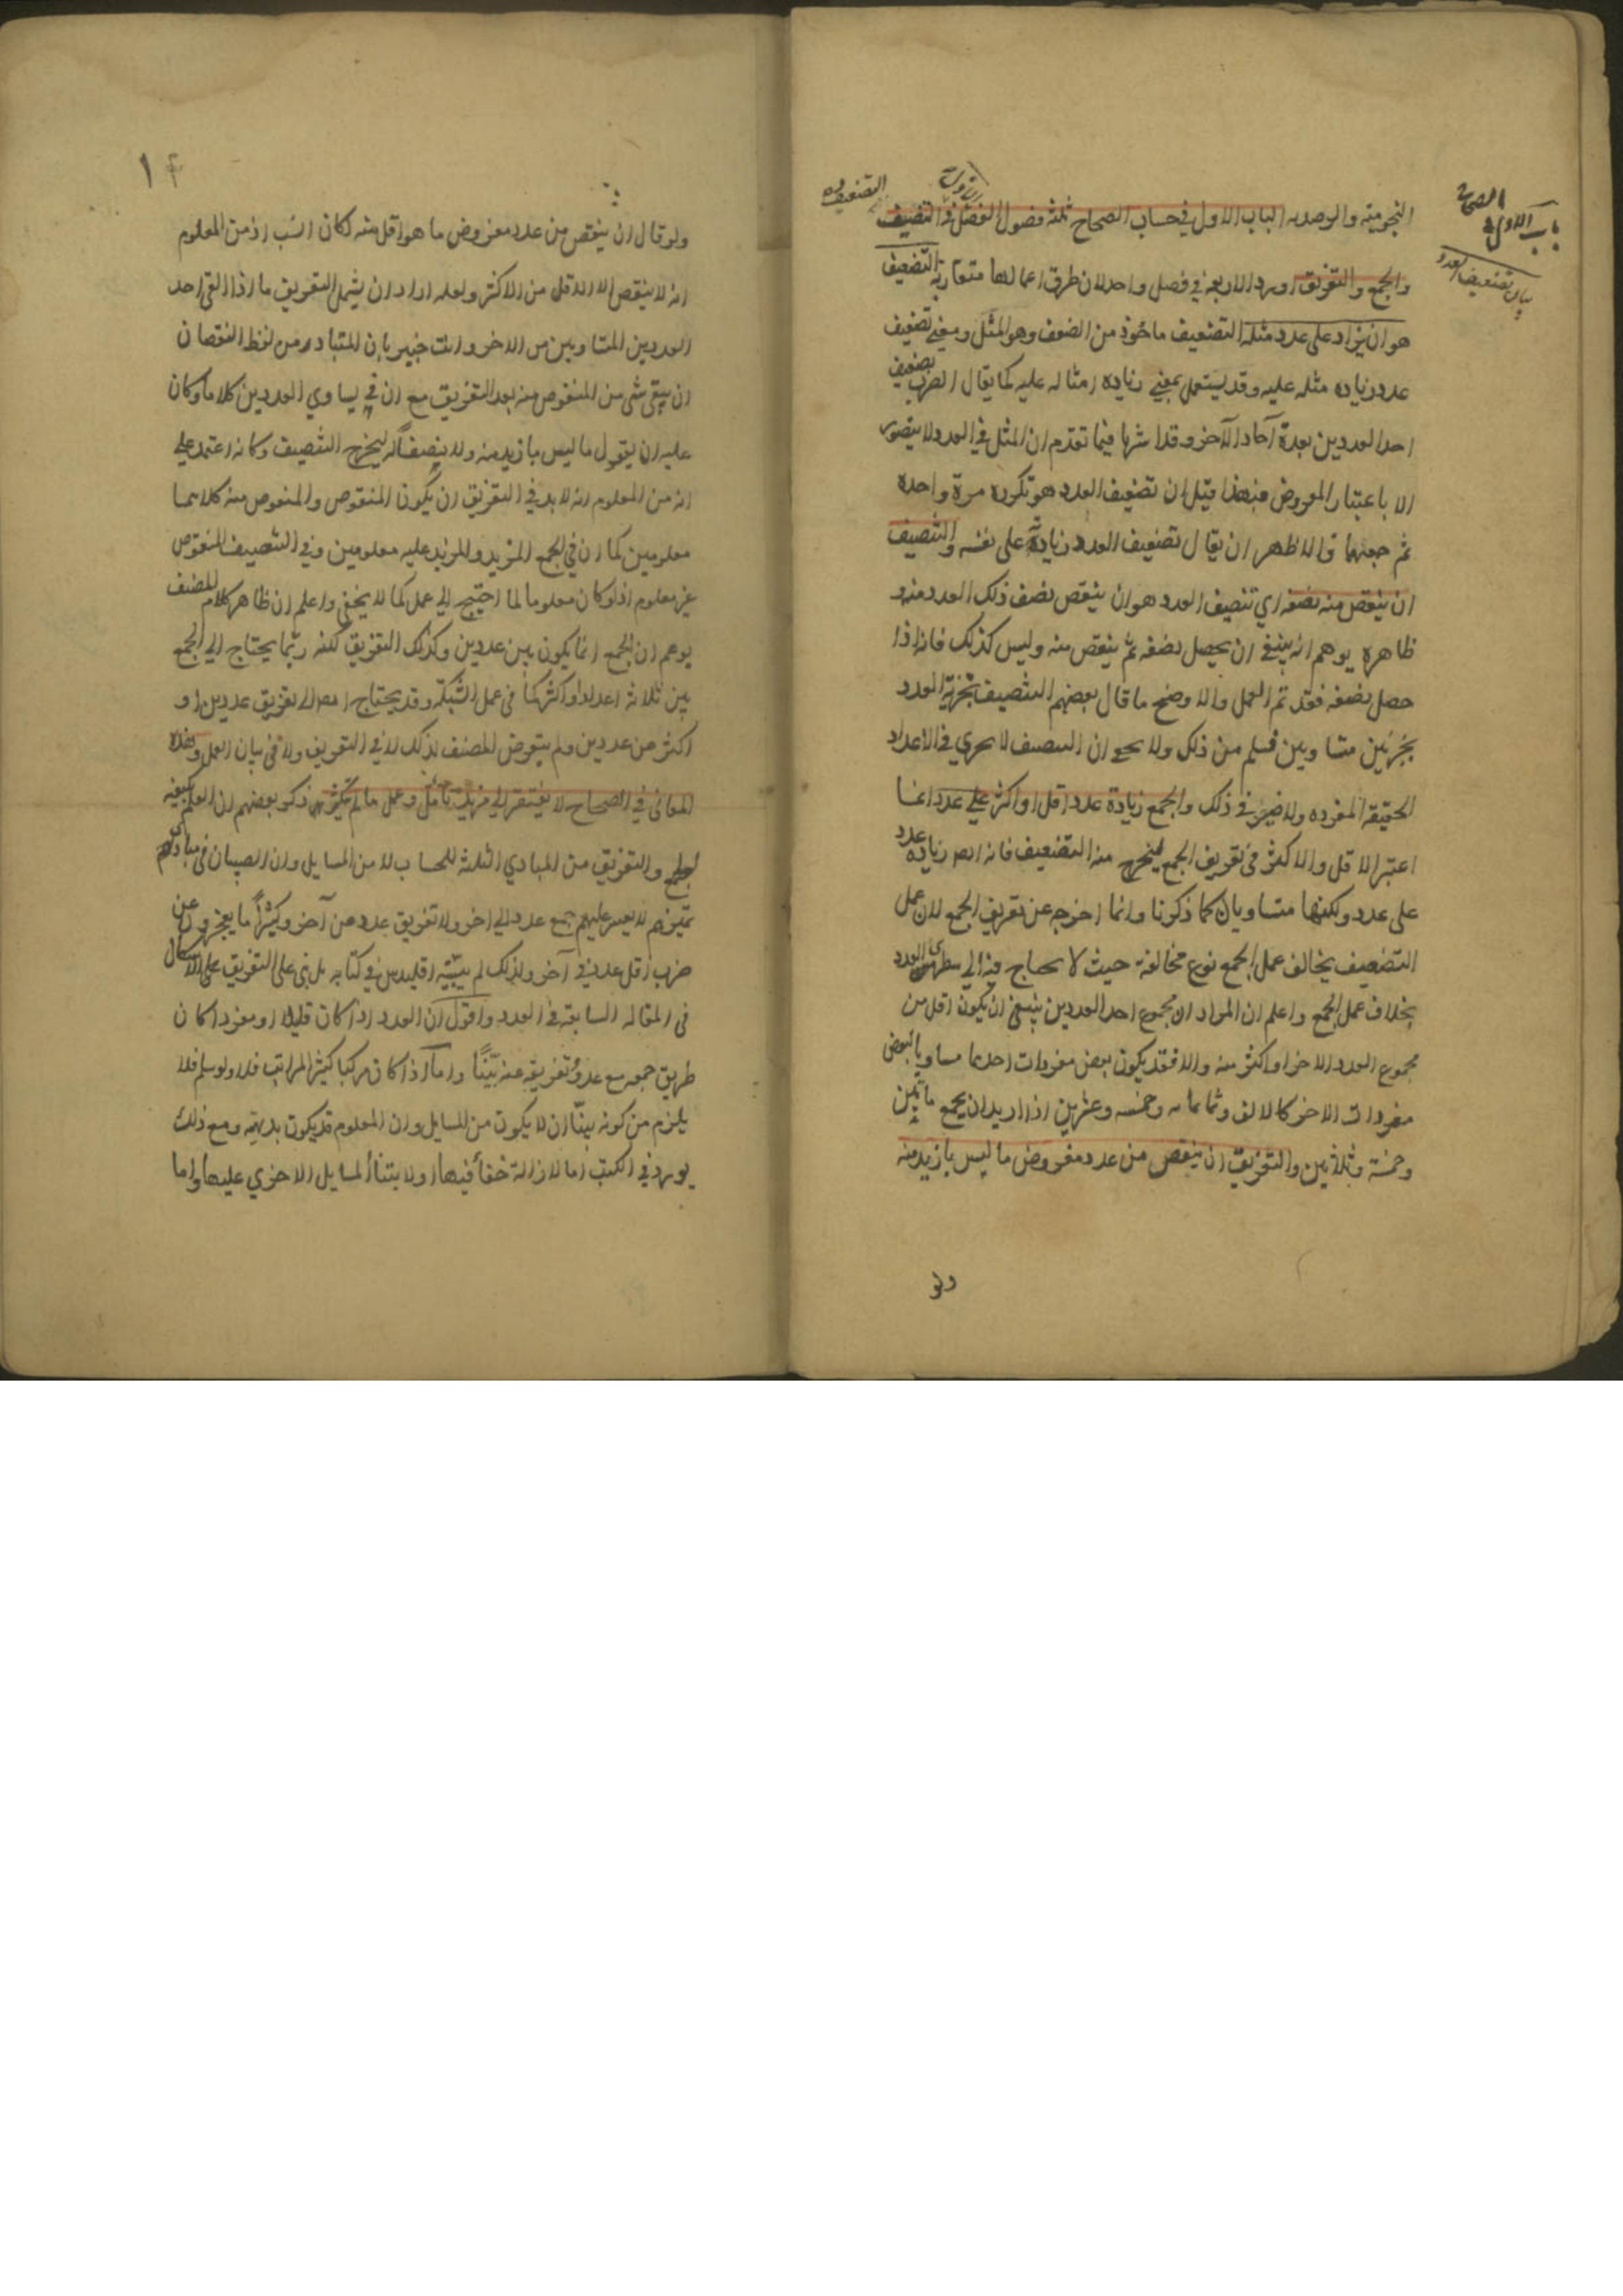 باب الاول في
الصحاح
بيان تضعيف العدد
النجومية والرصدية الباب الاول في حساب الصحاح ثلثة فصول الفصل الاول في التضعيف والتنصيف
والجمع والتفريق اورد الاربعة في فصل واحد لان طرق اعمالها متقاربة التضعيف
هو ان يزاد على عدد مثله التضعيف ماخوذ من الضعف وهو المثل ومعنى تضعيف
عدد زيادة مثله عليه وقد يستعمل بمعنى زيادة امثاله عليه كما يقال الضرب تضعيف
احد العددين بعدة آحاد الآخر وقد اشرنا فيما تقدم ان المثل في العدد لا يتصور
الا باعتبار المعروض فبهذا قيل ان تضعيف العدد هو تكرره مرة واحدة
ثم جمعهما والاظهر ان يقال تضعيف العدد زيادته على نفسه والتنصيف
ان ينقص منه نصفه اي تنصيف العدد هو ان ينقص نصف ذلك العدد منه و
ظاهره يوهم انه ينبغي ان يحصل نصفه ثم ينقص منه وليس كذلك فانه اذا
حصل نصفه فقد تم العمل والاوضح ما قال بعضهم التنصيف تجزية العدد
بجزئين متساويين فسلم من ذلك ولا يخفى ان التنصيف لا يجري في الاعداد
الحقيقة المفرده ولا ضير في ذلك والجمع زيادة عدد اقل او اكثر على عدد انما
اعتبر الاقل والاكثر في تعريف الجمع ليخرج منه التضعيف فانه ايضا زيادة عدد
على عدد ولكنهما متساويان كما ذكرنا وانما اخرجه عن تعريف الجمع لان عمل
التضعيف يخالف عمل الجمع نوع مخالفة حيث لا يحتاج فيه الى سطرى العدد
بخلاف عمل الجمع واعلم ان المراد ان مجموع احد العددين ينبغي ان يكون اقل من
مجموع العدد الاخر او اكثر منه والا فقد يكون بعض مفردات احدهما مساويا لبعض
مفردات الاخر كالالف وثمانمائه وخمسه وعشرين اذا اريد ان يجمع مأتين
وخمسة وثلاثين والتفريق ان ينقص من عدد مفروض ما ليس بازيد منه
ولو
١۴
ولو قال ان ينقص من عدد مفروض ما هو اقل منه لكان انسب اذ من المعلوم
انه لا ينقص الا الاقل من الاكثر ولعله اراد ان يشمل التفريق ما اذا القي احد
العددين المتساويين من الاخر وانت خبير بان المتبادر من لفظ النقصان
ان يبقى شي من المنقوص منه بعد التفريق مع ان في يساوي العددين كلاما وكان
عليه ان يقول ما ليس بازيد منه ولا ينصفا له ليخرج التنصيف وكانه اعتمد على
انه من المعلوم انه لا بد في التفريق ان يكون المنقوص والمنقوص منه كلاهما
معلومين كما ان في الجمع المزيد والمزيد عليه معلومين وفي التنصيف المنقوص
غير معلوم اذ لو كان معلوما لما احتيج الى عمل كما لا يخفى واعلم ان ظاهر كلام المصنف
يوهم ان الجمع انما يكون بين عددين وكذلك التفريق لكنه ربما يحتاج الى الجمع
بين ثلاثة اعداد او اكثر كما في عمل الشبكة وقد يحتاج ايضا الى تفريق عددين او
اكثر من عددين ولم يتعرض المصنف لذلك لا في التعريف ولا في بيان العمل وهذه
المعاني في الصحاح لا يفتقر الى مزيد تأمل وعمل ما لم يكثر ذكر بعضهم ان العلم بكيفية
الجمع والتفريق من المبادي الثلثة للحساب لا من المسايل وان الصبيان في مبادي
تميزهم لا يعسر عليهم جمع عدد الى اخر ولا تفريق عدد من آخر وكثيرا ما يعجزون عن
ضرب اقل عدد في آخر ولذلك لم يبينه اقليدس في كتابه بل بنى على التفريق على الاشكال
في المقاله السابعة في العدد واقول ان العدد اذا كان قليلا او مفردا كان
طريق جمعه مع عدد وتفريقه عنه بينا واما اذا كان مركبا كثير المراتب فلا ولو سلم فلا
يلزم من كونه بينا ان لا يكون من المسايل وان المعلوم قد يكون بديهيه ومع ذلك
يورد في الكتب اما لازالة خفأ فيها او لابتنأ المسايل الاخري عليها واما